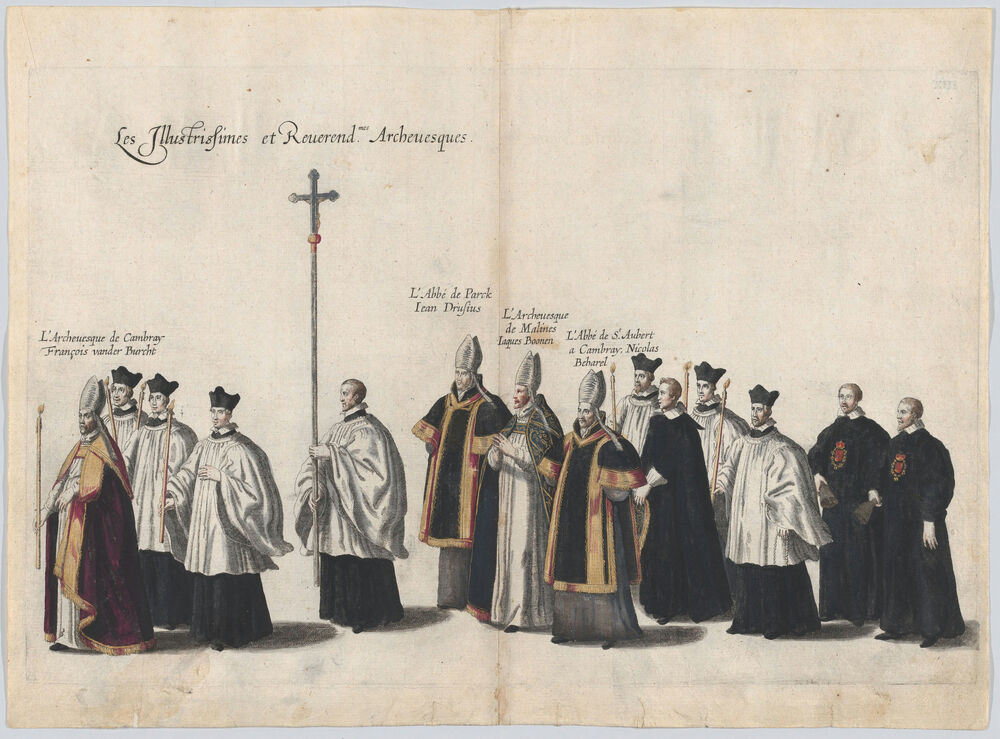 Les Illustrissimes et Reuerend.mes Archeuesques.
L'Archeuesque de Cambray
François vander Burcht
L'Abbé de Parck
Iean Drusius
L'Archeuesque
de Malines
Iaques Boonen
L'Abbé de S. Aubert
a Cambray, Nicolas
Beharel